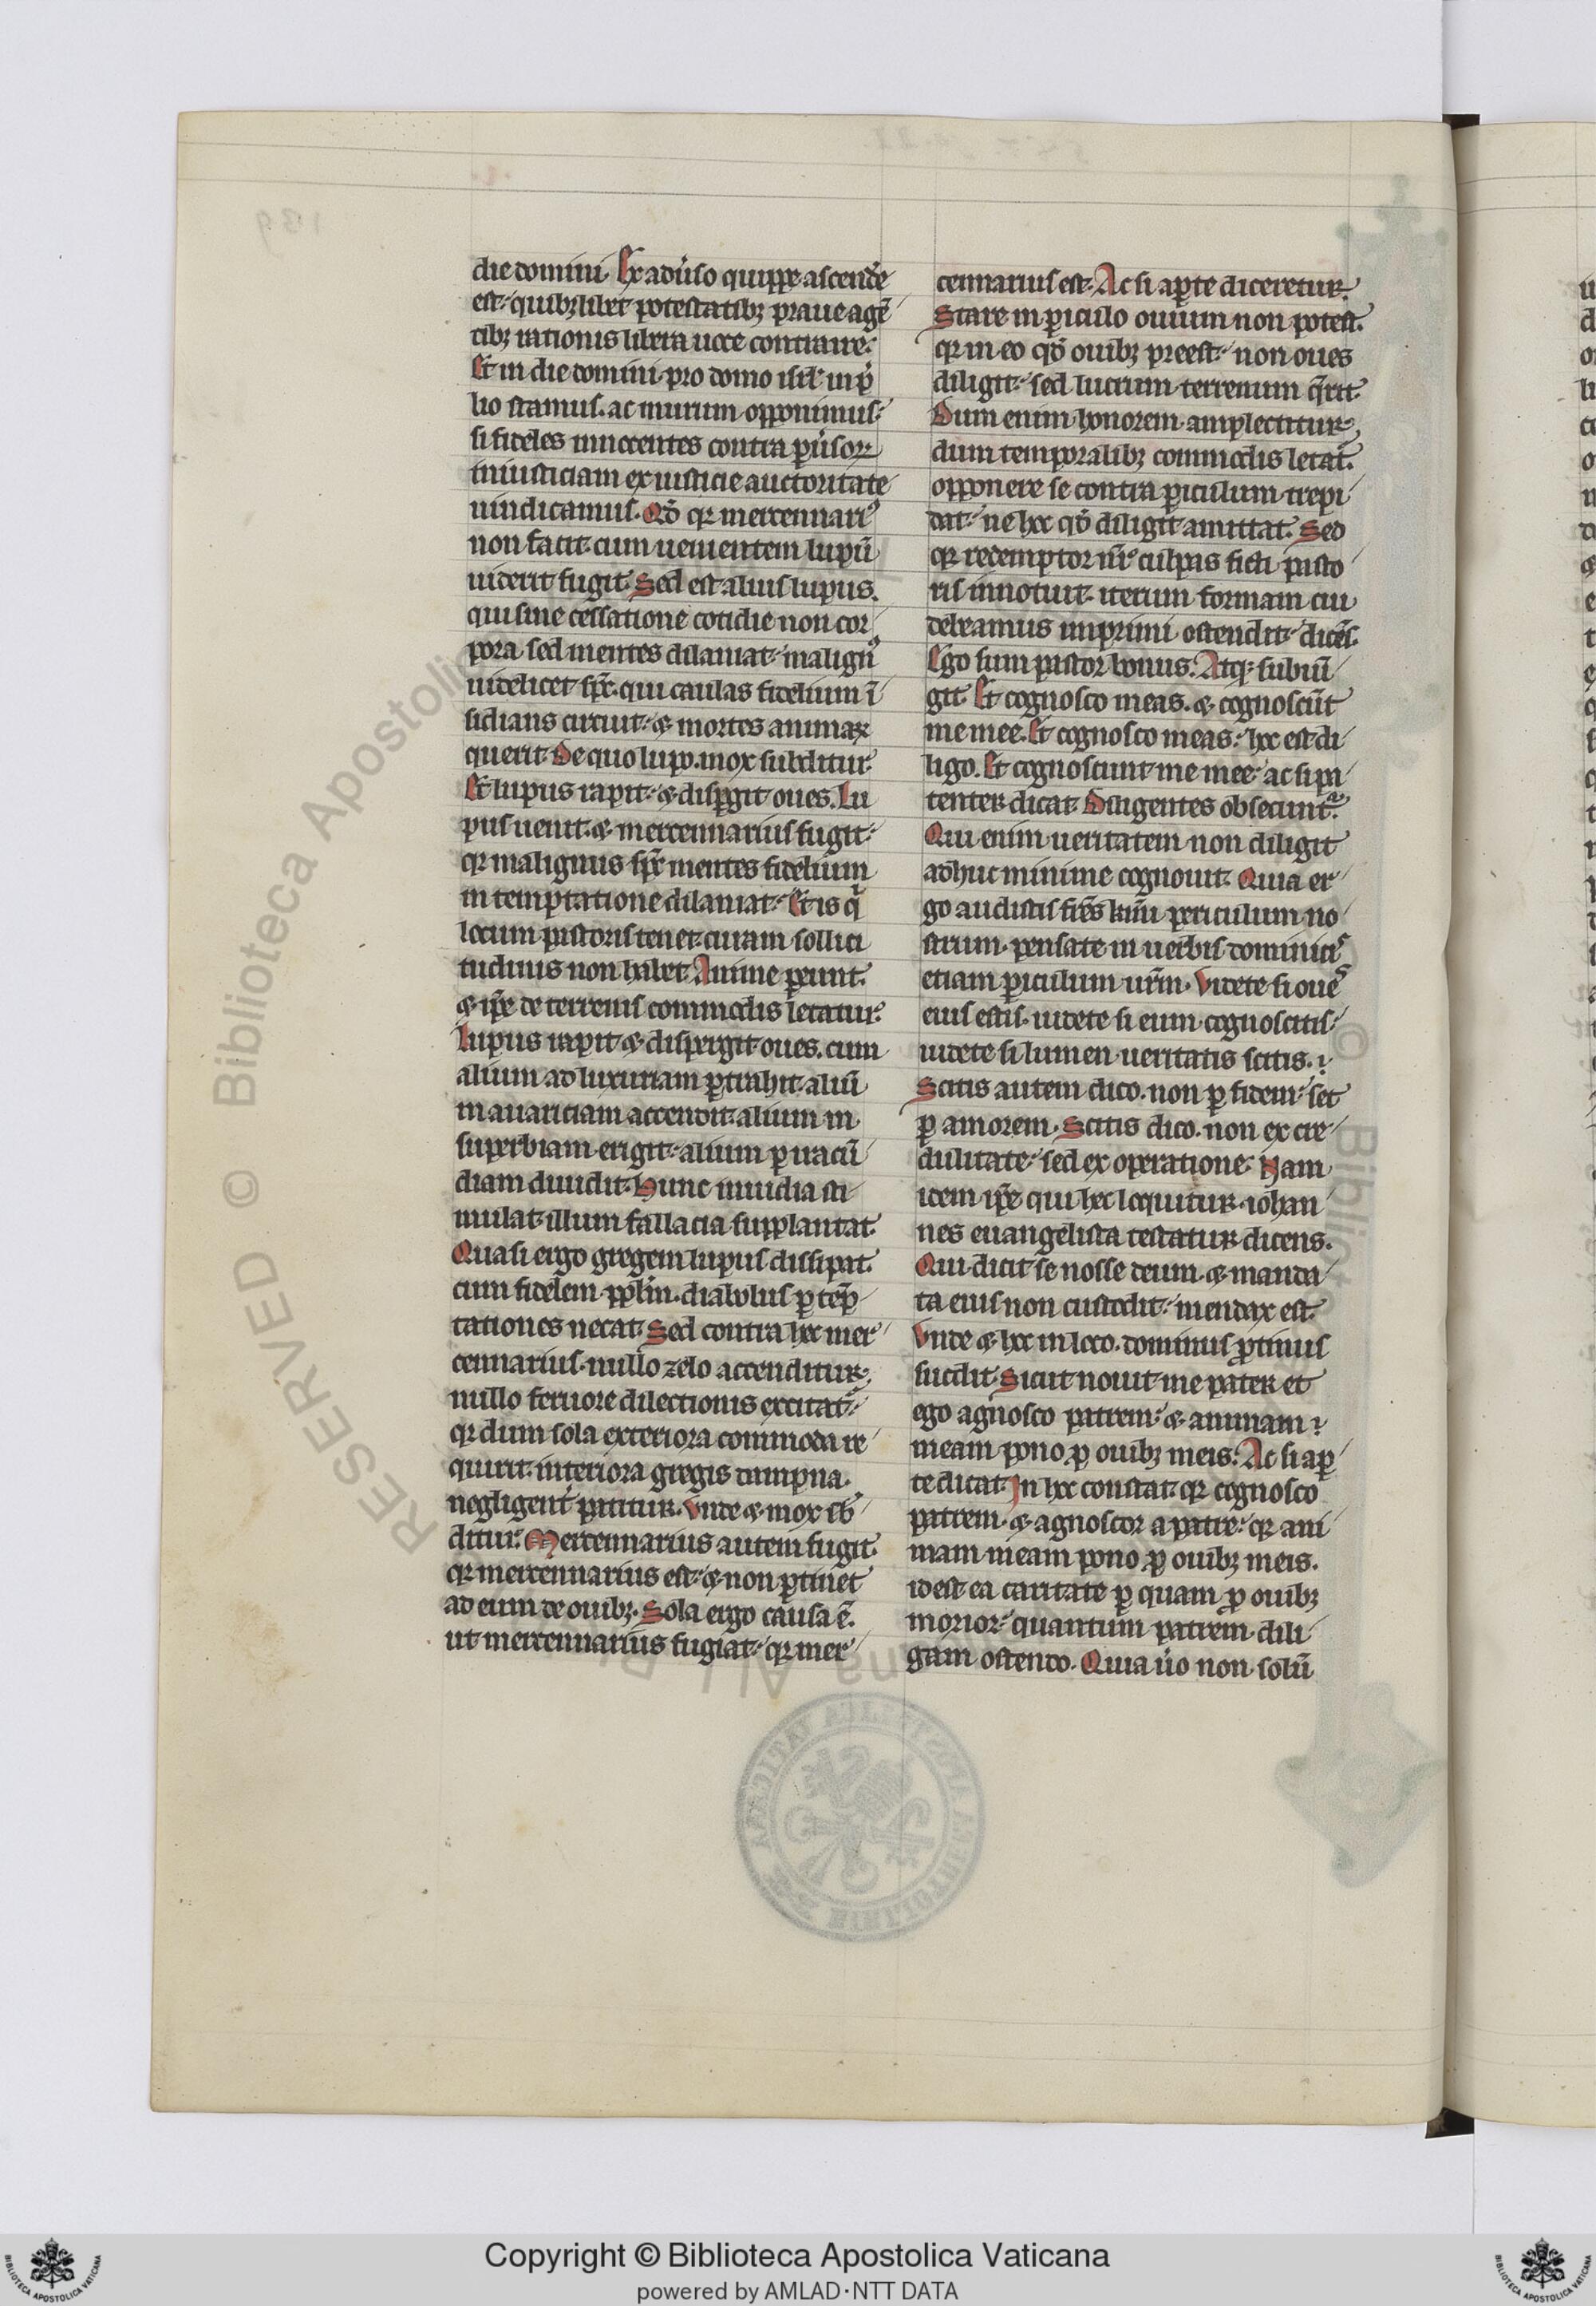 die domini. Ex adũso quippe ascende᷑
est. quibꝫlibet potestatibꝫ praue agē
tibꝫ rationis libera uoce contraire.
Et in die domini pro domo isrl̾ in p̾
lio stamus. ac murum opponimus.
si fideles innocentes contra ꝑũsoꝝ
iniusticiam ex iusticie auctoritate
uindicamus. Qd̾ qꝛ mercennariꝰ
non facit. cum uenientem lupū
uiderit fugit. Sed est alius lupus.
qui sine cessatione cotidie non cor
pora sed mentes dilaniat. malignꝰ
uidelicet sp̄c. qui caulas fidelium ī
sidians circuit. ⁊ mortes animaꝝ
querit. De quo lupo. mox subditur.
Et lupus rapit. ⁊ disꝑgit oues. Lu
pus uenit. ⁊ mercennarius fugit.
qꝛ malignus sp̄c mentes fidelium
in temptatione dilaniat. Et is q̾
locum pastoris tenet. curam sollici
tudinis non habet. Anime ꝑeunt.
⁊ ip̄e de terrenis commodis letatur.
Lupus rapit ⁊ dispergit oues. cum
alium ad luxuriam ꝑtrahit. aliū
in auariciam accendit. alium in
superbiam erigit. alium ꝑ iracū
diam diuidit. Hunc inuidia sti
mulat. illum fallacia supplantat.
Quasi ergo gregem lupus dissipat.
cum fidelem pp̄lm. diabolus ꝑ tēp
tationes necat. Sed contra hec mer
cennarius. nullo zelo accenditur.
nullo feruore dilectionis excitat᷑.
qꝛ dum sola exteriora commoda re
quirit. interiora gregis dampna.
negligent̾ patitur. Vnde ⁊ mox sb̾
ditur. Mercennarius autem fugit.
qꝛ mercennarius est. ⁊ non ꝑtinet
ad eum de ouibꝫ. Sola ergo causa ē.
ut mercennarius fugiat. qꝛ mer
cennarius est. Ac si aꝑte diceretur.
Stare in ꝑiculo ouium non potest.
qꝛ in eo qd̾ ouibꝫ preest. non oues
diligit. sed lucrum terrenum q̄rit.
Dum enim honorem amplectitur.
dum temporalibꝫ commodis letat᷑.
opponere se contra ꝑiculum trepi
dat. ne hoc qd̾ diligit amittat. Sed
qꝛ redemptor nr̄ culpas ficti pasto
ris innotuit. iterum formam cui
debeamus imprimi ostendit. dicēs.
Ego sum pastor bonus. Atqꝫ subiū
git. Et cognosco meas. ⁊ cognoscūt
me mee. Et cognosco meas. hoc est di
ligo. Et cognoscunt me mee. ac si pa
tenter dicat. Diligentes obsecunt᷑.
Qui enim ueritatem non diligit
adhuc minime cognouit. Quia er
go audistis fr̄es kmī periculum no
strum. pensate in uerbis dominicꝰ
etiam ꝑiculum ur̄m. Videte si oueˢ
eius estis. uidete si eum cognoscitis.
uidete si lumen ueritatis scitis.
Scitis autem dico. non ꝑ fidem. set
ꝑ amorem. Scitis dico. non ex cre
dulitate. sed ex operatione. Nam
idem ip̄e qui hec loquitur. iohan
nes euangelista testatur dicens.
Qui dicit se nosse deum. ⁊ manda
ta eius non custodit. mendax est.
Vnde ⁊ hoc in loco. dominus ꝓtinus
subdit. Sicut nouit me pater et
ego agnosco patrem. ⁊ animam
meam pono ꝓ ouibꝫ meis. Ac si aꝑ
te dicat. In hoc constat. qꝛ cognosco
patrem. ⁊ agnoscor a patre. qꝛ ani
mam meam pono ꝓ ouibꝫ meis.
id est ea caritate ꝑ quam ꝓ ouibꝫ
morior. quantum patrem dili
gam ostendo. Quia ũo non solū
RESERVED © Biblioteca Apostolic
© Bibliot
Copyright © Biblioteca Apostolica Vaticana
powered by AMLAD·NTT DATA
BIBLIOTECA APOSTOLICA VATICANA
BIBLIOTECA APOSTOLICA VATICANA